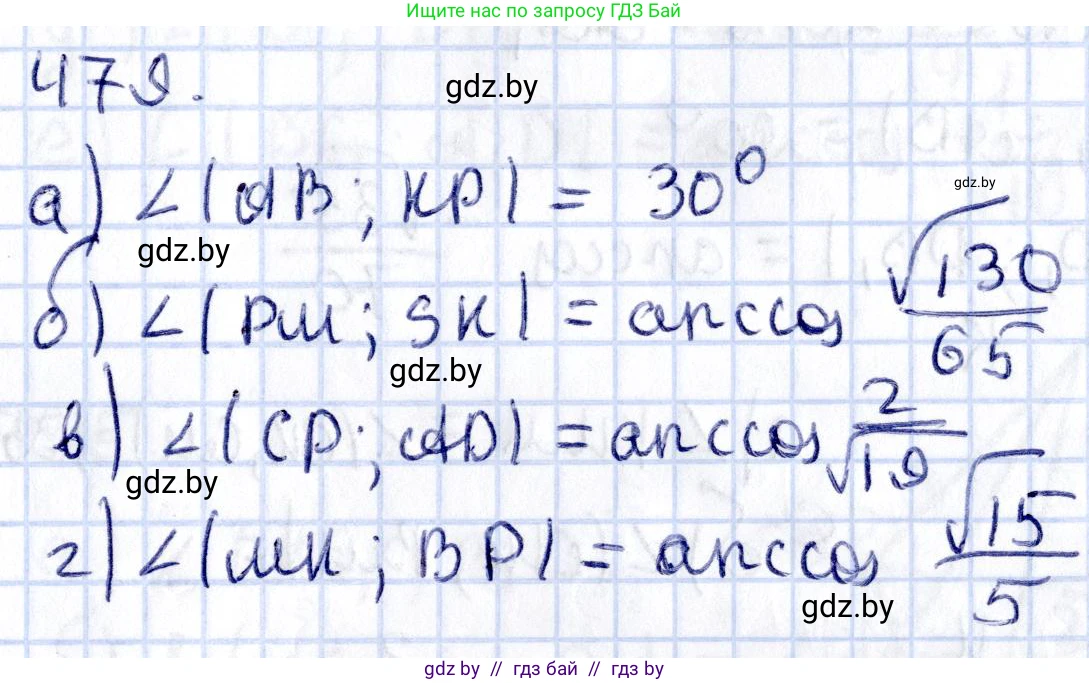 Ищите нас по запросу ГДЗ Бай
479.
gdz.by
а) ∠(AB; KP) = 30°
gdz.by
gdz.by
б) ∠(PM; SK) = arccos √130/65
gdz.by
в) ∠(CP; AD) = arccos 2/√19
gdz.by
г) ∠(MK; BP) = arccos √15/5
gdz.by
gdz by // гдз бай // гдз by